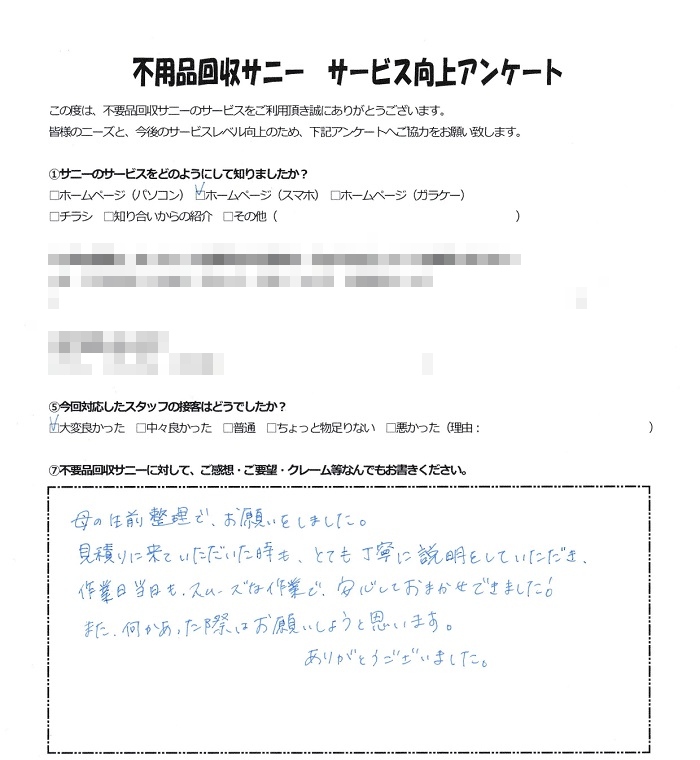 不用品回収サニー　サービス向上アンケート
この度は、不要品回収サニーのサービスをご利用頂き誠にありがとうございます。
皆様のニーズと、今後のサービスレベル向上のため、下記アンケートへご協力をお願い致します。
①サニーのサービスをどのようにして知りましたか？
□ホームページ（パソコン）　☑ホームページ（スマホ）　□ホームページ（ガラケー）
□チラシ　□知り合いからの紹介　□その他（　　　　　　　　　　）
⑤今回対応したスタッフの接客はどうでしたか？
☑大変良かった　□中々良かった　□普通　□ちょっと物足りない　□悪かった（理由：　　　　　　　　　　）
⑦不要品回収サニーに対して、ご感想・ご要望・クレーム等なんでもお書きください。
母の生前整理で、お願いをしました。
見積りに来ていただいた時も、とても丁寧に説明をしていただき、
作業日当日も、スムーズな作業で、安心しておまかせできました！
また、何かあった際はお願いしようと思います。
ありがとうございました。